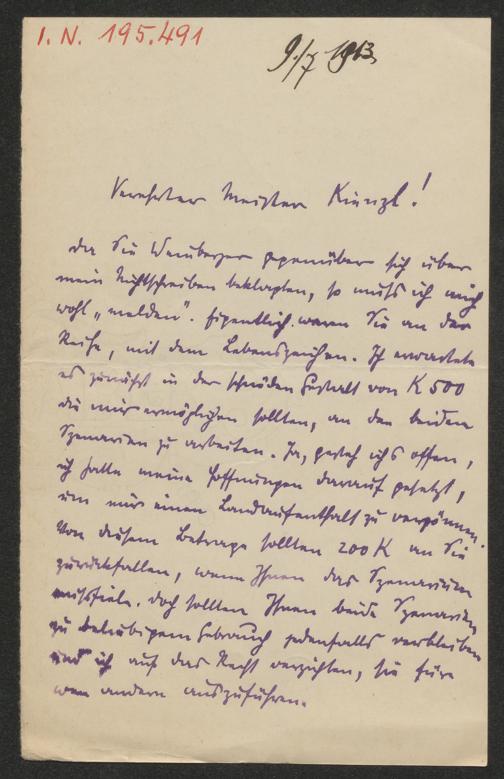 I. N. 195.491
9./7 1913
Verehrter Meister Kienzl!
da Sie Weinberger gegenüber sich über
mein Nichtschreiben beklagten, so muß ich mich
wohl „melden". Eigentlich waren Sie an der
Reihe, mit dem Lebenszeichen. Ich erwartete
es zunächst in der schnöden Gestalt von K 500
die mir ermöglichen sollten, an den beiden
Szenarien zu arbeiten. Ja, gesteh ichs offen,
ich hatte meine Hoffnungen darauf gesetzt,
um mir einen Landaufenthalt zu vergönnen.
Von diesem Betrage sollten 200 K an Sie
zurückfallen, wenn Ihnen das Szenarium
mißfiele. Doch sollten Ihnen beide Szenarien
zu beliebigem Gebrauch jedenfalls verbleiben
und ich auf das Recht verzichten, sie für
wen andern auszuführen.